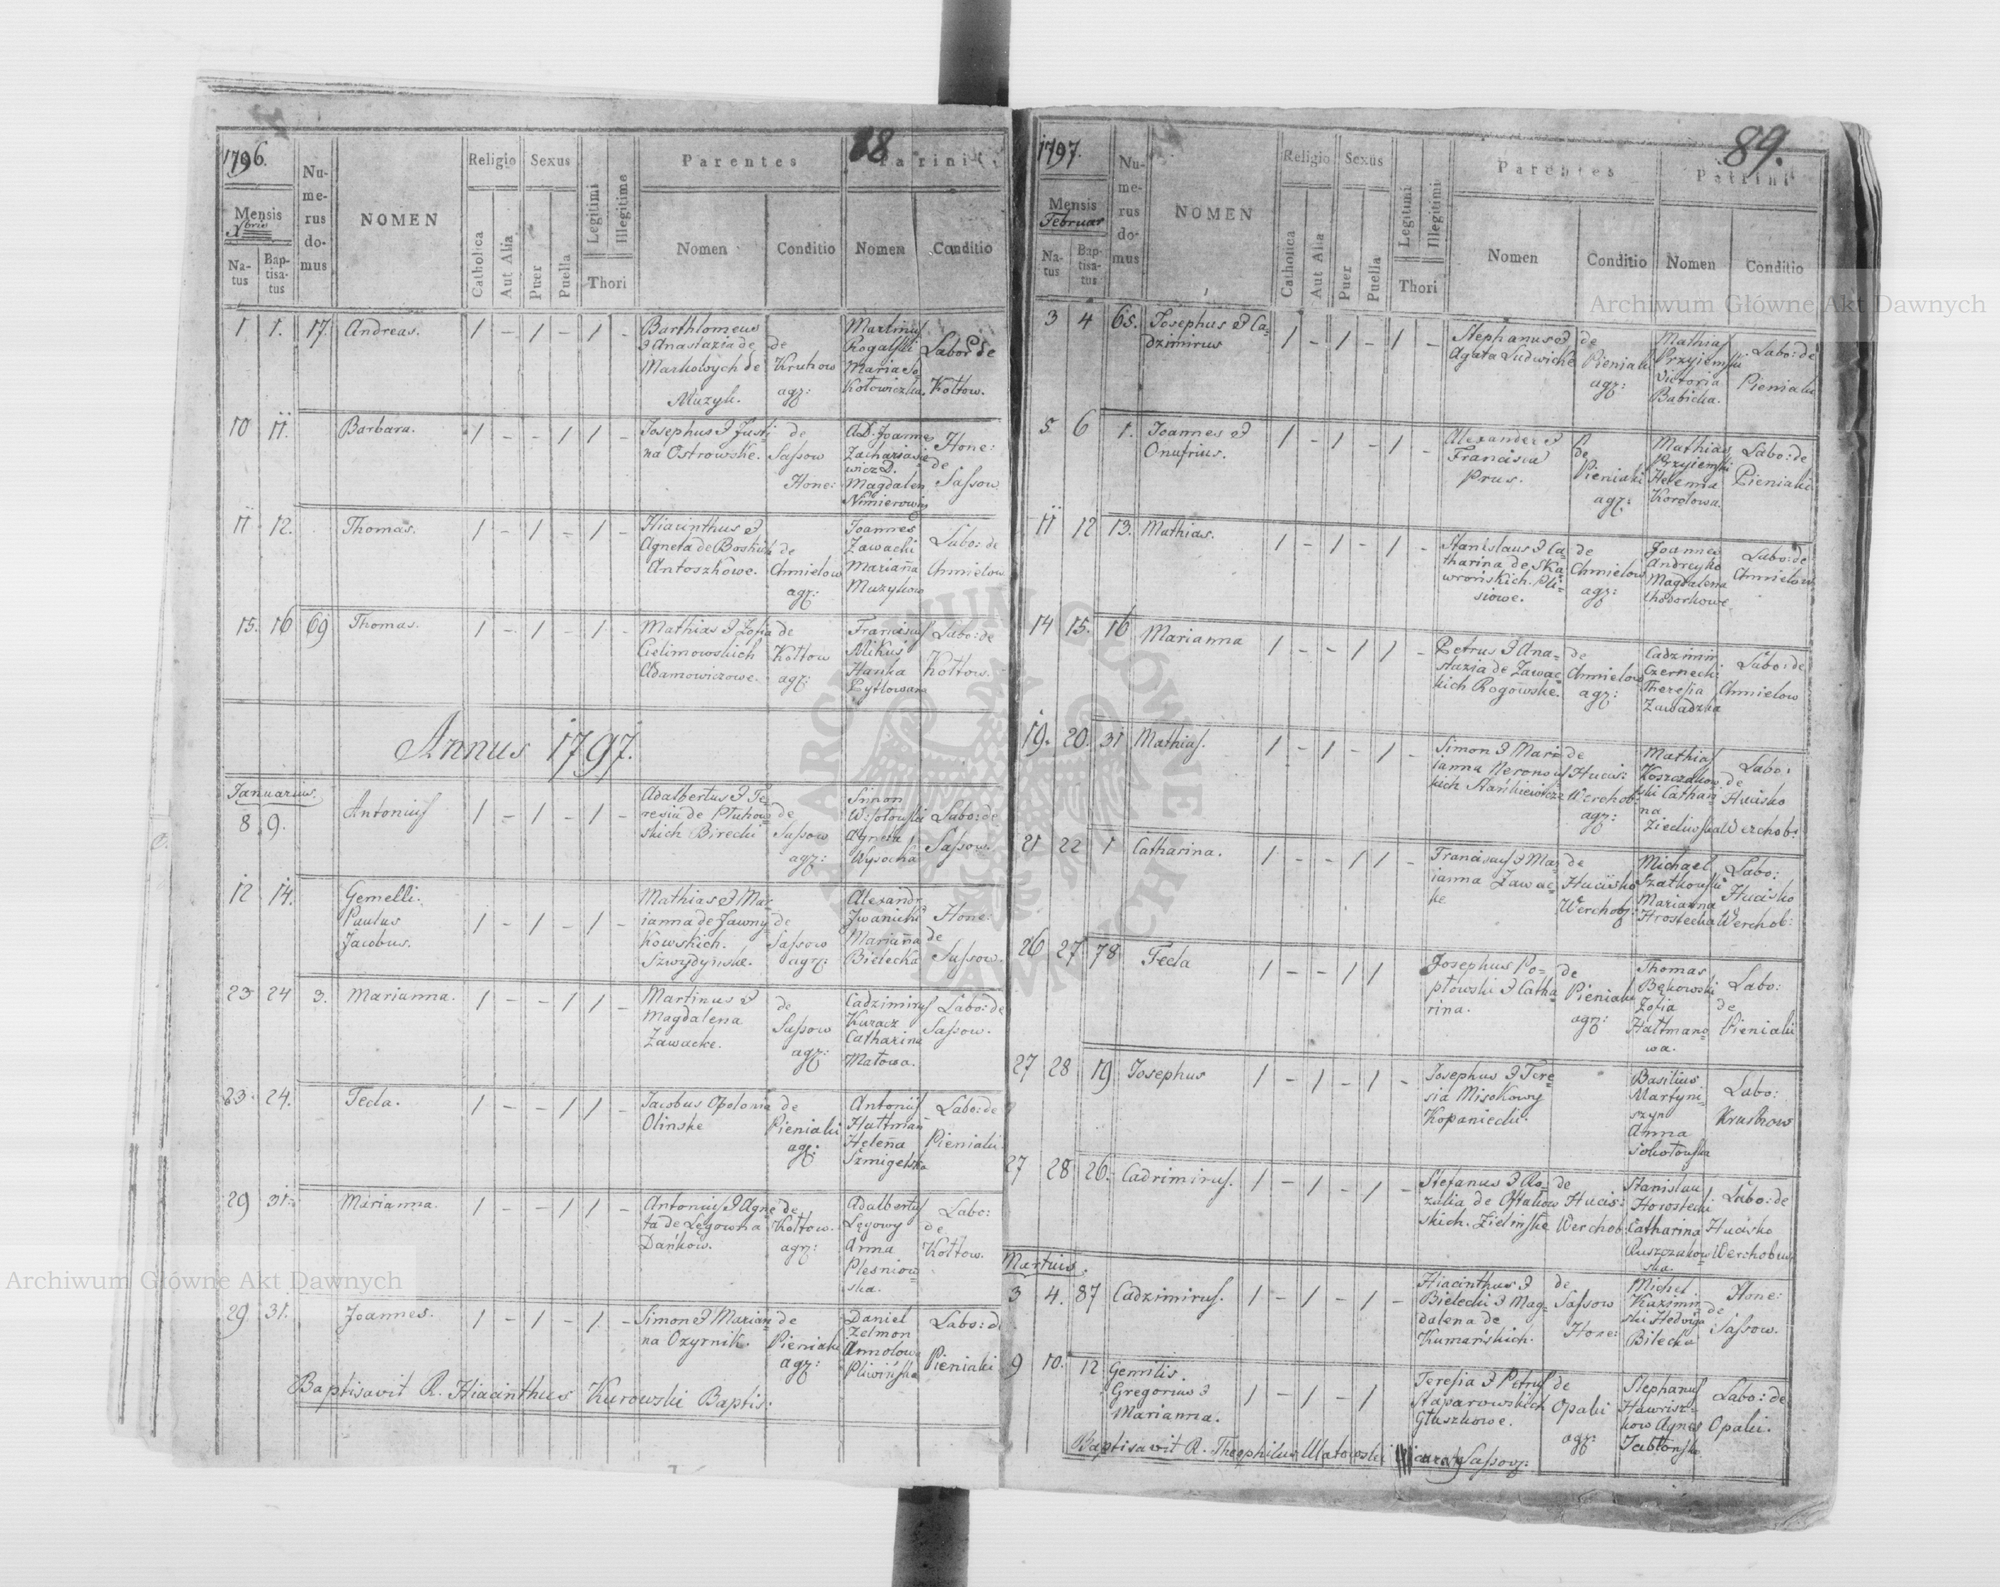 1796.
88
Mensis
Xbris
Natus
Baptisatus
Numerus domus
NOMEN
Religio
Catholica
Aut Alia
Sexus
Puer
Puella
Legitimi
Illegitimi
Thori
Parentes
Nomen
Conditio
Patrini
Nomen
Conditio
1 1. 17. Andreas. 1 - 1 - 1 -
Bartholomeus
et Anastazia de
Markowych de
Muzyk.
de
Kruhow
agr:
Martinus
Rogalski
Maria So
Kołowiczka
Labo: de
Kołtow.
10 11. Barbara. 1 - - 1 1 -
Josephus et Justi=
na Ostrowske.
de
Sassow
Hone:
A.D. Joannes
Zachariasie
wicz D.
Magdalen
Nimierowin
Hone:
de
Sassow
11 12. Thomas. 1 - 1 - 1 -
Hiacinthus et
Agneta de
Antoszkowe.
de
Chmielow
agr:
Joannes
Zawacki
Marianna
Muzykow
Labo: de
Chmielow
15. 16 69 Thomas. 1 - 1 - 1 -
Mathias et Zofia
Cielimowskich
Adamowiczowe.
de
Kołtow
agr:
Franciscus
Mikus
Hanka
Pytlowana
Labo: de
Kołtow.
Annus 1797.
Januarius.
8 9. Antonius 1 - 1 - 1 -
Adalbertus et Te
resia de Płuhow=
skich Birecki
de
Sassow
agr:
Simon
Wesołowski
Agneta
Wysocka
Labo: de
Sassow.
12 14. Gemelli.
Paulus
Jacobus. 1 - 1 - 1 -
Mathias et Mar
ianna de Jawny=
kowskich.
Szwydynske.
de
Sassow
agr:
Alexandr
Jwanicki
Marianna
Bielecka
Hone:
de
Sassow.
23 24 3. Marianna. 1 - - 1 1 -
Martinus et
Magdalena
Zawacke.
de
Sassow
agr:
Cadzimirus
Kuracz
Catharina
Małowa.
Labo: de
Sassow.
23. 24. Tecla. 1 - - 1 1 -
Jacobus Opolonia
Olinske
de
Pieniaki
agr:
Antonius
Hattman
Helena
Szmigelska
Labo: de
Pieniaki.
29 31. Marianna. 1 - - 1 1 -
Antonius et Agne
ta de Lęgowna
Dańkow.
de
Kołtow.
agr:
Adalbertus
Lęgowy
Anna
Plesniow=
ska.
Labo:
de
Kołtow.
29 31. Joannes. 1 - 1 - 1 -
Simon et Marian
na Ozyrnik.
de
Pieniaki
agr:
Daniel
Zelmon
Annolowa
Pliwińska
Labo: de
Pieniaki
Baptisavit R. Hiacinthus Kurowski Baptis:
1797.
89.
Mensis
Februar
Natus
Baptisatus
Numerus domus
NOMEN
Religio
Catholica
Aut Alia
Sexus
Puer
Puella
Legitimi
Illegitimi
Thori
Parentes
Nomen
Conditio
Patrini
Nomen
Conditio
3 4 65. Josephus et Ca=
dzimirus 1 - 1 - 1 -
Stephanus et
Agata Ludwicke
de
Pieniaki
agr:
Mathias
Przyiemski
Victoria
Babicka.
Labo: de
Pieniaki
5 6 1. Joannes et
Onufrius. 1 - 1 - 1 -
Alexander et
Francisca
Prus.
de
Pieniaki
agr:
Mathias
Przyiemski
Helena
Korolowa.
Labo: de
Pieniaki
11 12 13. Mathias. 1 - 1 - 1 -
Stanislaus et Ca=
tharina de Ska
wrońskich Pli=
siowe.
de
Chmielow
agr:
Joannes
Andreyko
Magdalena
Chodorkowe
Labo: de
Chmielow.
14 15. 16 Marianna 1 - - 1 1 -
Petrus et Ana=
stazia de Zawac=
kich Rogowske.
de
Chmielow
agr:
Cadzimir
Czernecki
Theresia
Zawadzka
Labo: de
Chmielow
19. 20. 31 Mathias. 1 - 1 - 1 -
Simon et Mari
ianna Neronow
kich Stańkiewicze
de
Hucis:
Werchob:
agr:
Mathias
Koszczakow
ski Cathari=
na
Labo:
de
Hucisko
Werchob:
21 22 1 Catharina. 1 - - 1 1 -
Franciscus et Mar
ianna Zawac=
ke
de
Hucisko
Werchob:
Michael
Szatkowski
Marianna
Hrostecka
Labo:
Hucisko
Werchob:
26 27 78 Tecla 1 - - 1 1
Josephus Po=
płowski et Catha=
rina.
de
Pieniaki
agr:
Thomas
Bękowski
Zofia
Hattmano
wa.
Labo:
de
Pieniaki
27 28 19 Josephus 1 - 1 - 1 -
Josephus et Tere=
sia Misokowy
Kopaniecki.
Basilius
Martyni=
szyn
Anna
Sokołowska
Labo:
Kruhow
27 28 26. Cadzimirus. 1 - 1 - 1 -
Stefanus et Ro=
zalia de Ostakow
skich. Zielińske
de
Hucis:
Werchob
Stanislau
Horostecki
Catharina
Ruszczakow
ska.
Labo: de
Hucisko
Werchobus
Martius.
3 4. 87 Cadzimirus. 1 - 1 - 1 -
Hiacinthus et
Bielecki et Mag=
dalena de
Kumańskich.
de
Sassow
Hone:
Michael
Kazimir
ski Hedviga
Bilecka
Hone:
de
Sassow.
9 10. 12 Gemilis.
Gregorius et
Marianna. 1 - 1 - 1
Teresia et Petrus
Staparowskich
Głuszkowe.
de
Opaki
agr:
Stephanus
Hawrisz=
kow Agnes
Jabłonska
Labo: de
Opaki.
Baptisavit R. Theophilus Matowski Sassow:
Archiwum Główne Akt Dawnych
Archiwum Główne Akt Dawnych
ARCHIWUM GŁÓWNE AKT DAWNYCH